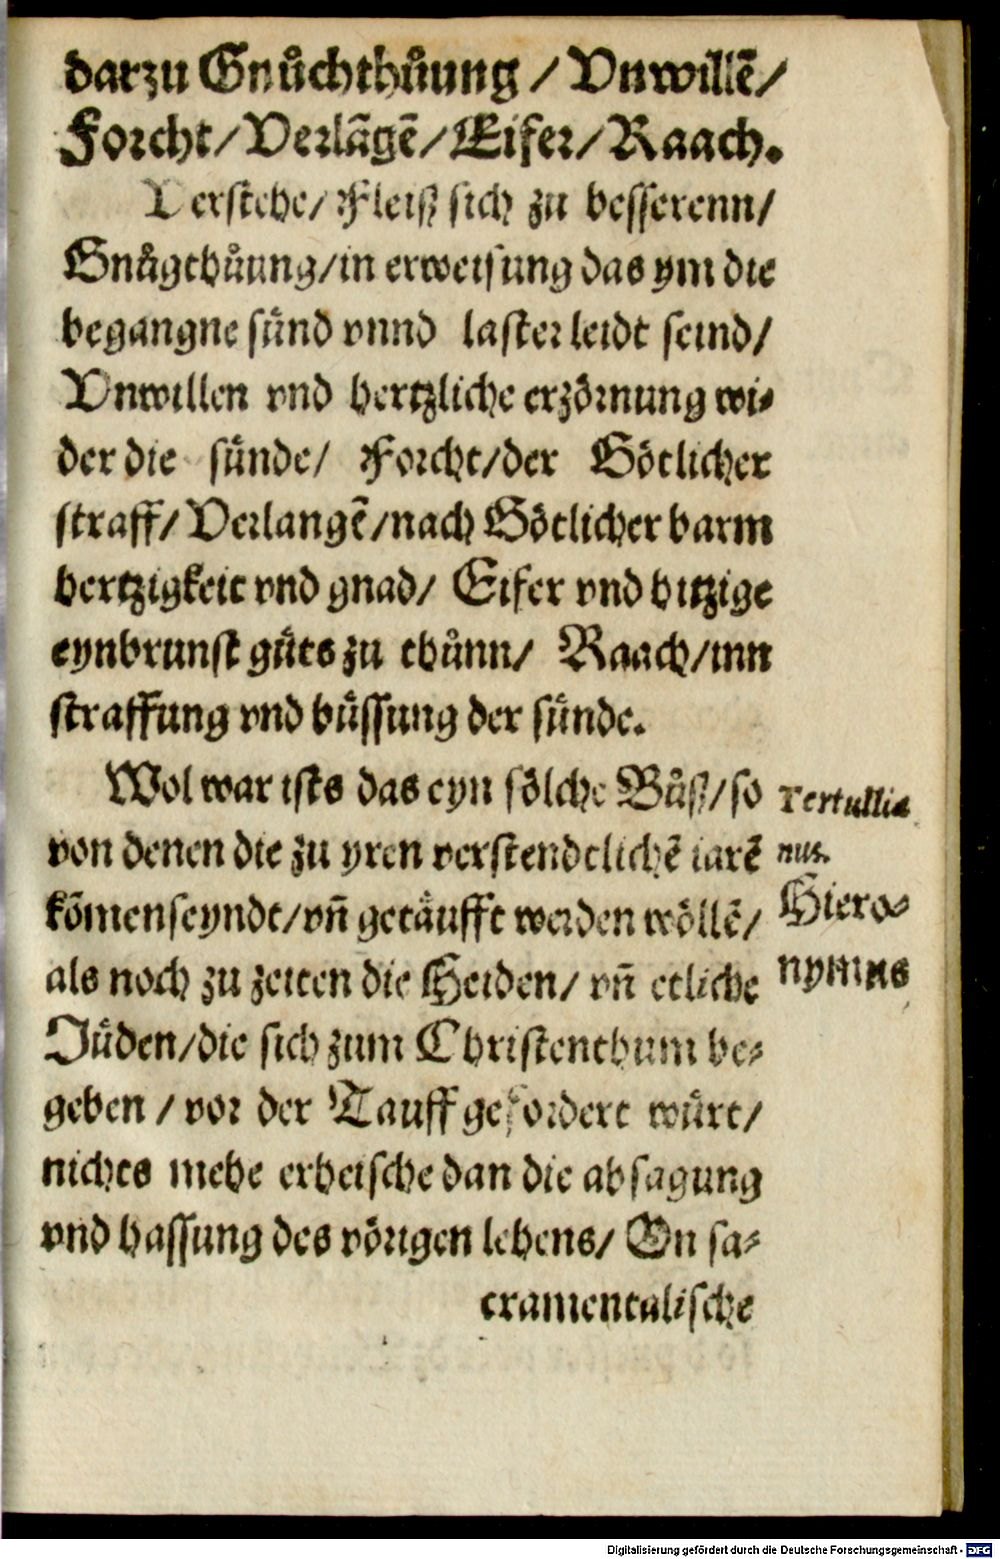 darzu Gnůchthůung / Vnwillẽ/
Forcht/ Verlãgẽ/ Eifer/ Raach.
Verstehe/ Fleiß sich zu besserenn/
Gnůgthůung/in erweisung das ym die
begangne sünd vnnd laster leidt seind/
Vnwillen vnd hertzliche erzörnung wi⸗
der die sünde/ Forcht/der Götlicher
straff/ Verlangẽ/nach Götlicher barm
hertzigkeit vnd gnad/ Eifer vnd hitzige
eynbrunst gůts zu thůnn/ Raach/inn
straffung vnd bůssung der sünde.
Wol war ists das eyn sölche Bůß/so
von denen die zu yren verstendtlichẽ iarẽ
kõmenseyndt/vñ getäufft werden wöllẽ/
als noch zu zeiten die Heiden/ vñ etliche
Jüden/die sich zum Christenthum be⸗
geben / vor der Tauff gefordert würt/
nichts mehe erheische dan die absagung
vnd hassung des vörigen lebens/ On sa⸗
cramentalische
Tertullia
nus.
Hiero⸗
nymus
Digitalisierung gefördert durch die Deutsche Forschungsgemeinschaft - DFG